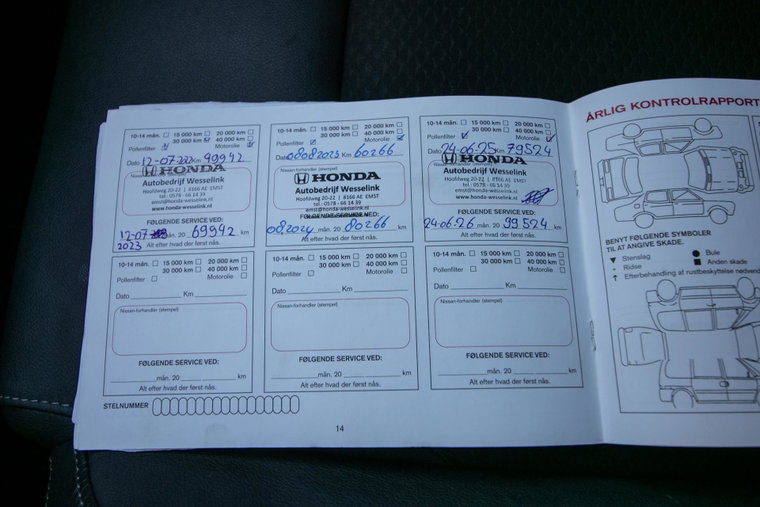 10-14 mån. 15 000 km 20 000 km
30 000 km 40 000 km
Pollenfilter Motorolie
Dato 12-07-2022 Km 49942
HONDA
Autobedrijf Wesselink
Hoofdweg 20-22 | 8166 AE EMST
tel.: 0578 - 66 14 39
emst@honda-wesselink.nl
www.honda-wesselink.nl
FØLGENDE SERVICE VED:
12-07 mån. 20 69942 km
2023 Alt efter hvad der først nås.
10-14 mån. 15 000 km 20 000 km
30 000 km 40 000 km
Pollenfilter Motorolie
Dato 08082023 Km 60266
Nissan-forhandler (stempel)
HONDA
Autobedrijf Wesselink
Hoofdweg 20-22 | 8166 AE EMST
tel.: 0578 - 66 14 39
emst@honda-wesselink.nl
FØLGENDE SERVICE VED:
082024 mån. 20 80266 km
Alt efter hvad der først nås.
10-14 mån. 15 000 km 20 000 km
30 000 km 40 000 km
Pollenfilter Motorolie
Dato 24-06-25 Km 79524
HONDA
Autobedrijf Wesselink
Hoofdweg 20-22 | 8166 AE EMST
tel.: 0578 - 66 14 39
emst@honda-wesselink.nl
www.honda-wesselink.nl
FØLGENDE SERVICE VED:
24-06-26 mån. 20 99524 km
Alt efter hvad der først nås.
10-14 mån. 15 000 km 20 000 km
30 000 km 40 000 km
Pollenfilter Motorolie
Dato Km
Nissan-forhandler (stempel)
FØLGENDE SERVICE VED:
mån. 20 km
Alt efter hvad der først nås.
10-14 mån. 15 000 km 20 000 km
30 000 km 40 000 km
Pollenfilter Motorolie
Dato Km
Nissan-forhandler (stempel)
FØLGENDE SERVICE VED:
mån. 20 km
Alt efter hvad der først nås.
10-14 mån. 15 000 km 20 000 km
30 000 km 40 000 km
Pollenfilter Motorolie
Dato Km
Nissan-forhandler (stempel)
FØLGENDE SERVICE VED:
mån. 20 km
Alt efter hvad der først nås.
STELNUMMER
14
ÅRLIG KONTROLRAPPORT
BENYT FØLGENDE SYMBOLER
TIL AT ANGIVE SKADE.
Stenslag Bule
Ridse Anden skade
Efterbehandling af rustbeskyttelse nødvend